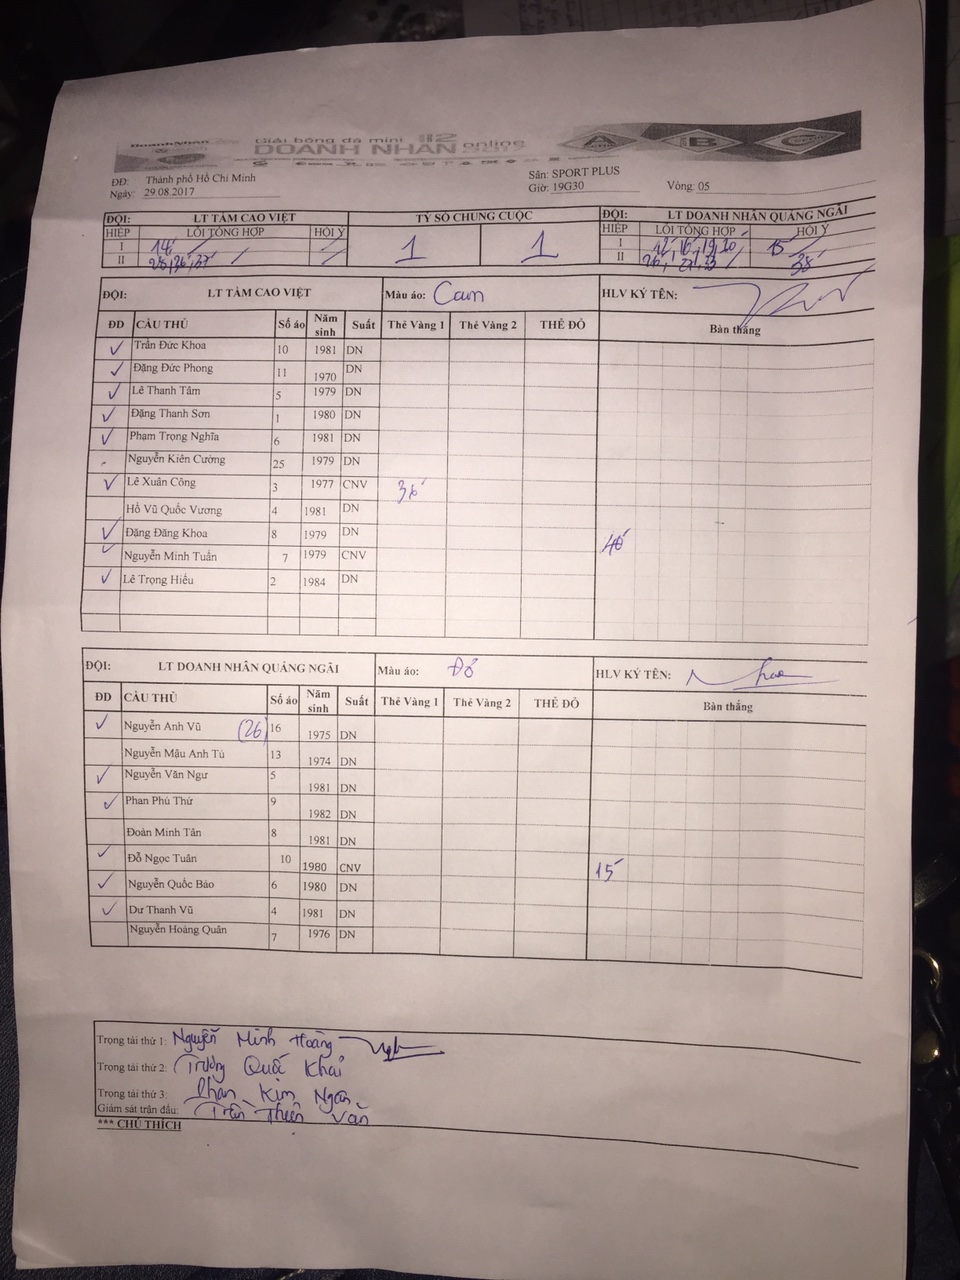 Giải bóng đá mini
DOANH NHÂN online
ĐĐ: Thành phố Hồ Chí Minh Sân: SPORT PLUS
Ngày: 29.08.2017 Giờ: 19G30 Vòng: 05
ĐỘI: LT TÂM CAO VIỆT TỶ SỐ CHUNG CUỘC ĐỘI: LT DOANH NHÂN QUẢNG NGÃI
HIỆP LỖI TỔNG HỢP HỘI Ý 1 1 HIỆP LỖI TỔNG HỢP HỘI Ý
I 14' I 15'
II II 38'
ĐỘI: LT TÂM CAO VIỆT Màu áo: Cam HLV KÝ TÊN:
ĐD CẦU THỦ Số áo Năm sinh Suất Thẻ Vàng 1 Thẻ Vàng 2 THẺ ĐỎ Bàn thắng
Trần Đức Khoa 10 1981 DN
Đặng Đức Phong 11 1970 DN
Lê Thanh Tâm 5 1979 DN
Đặng Thanh Sơn 1 1980 DN
Phạm Trọng Nghĩa 6 1981 DN
Nguyễn Kiên Cường 25 1979 DN
Lê Xuân Công 3 1977 CNV 36'
Hồ Vũ Quốc Vương 4 1981 DN
Đặng Đăng Khoa 8 1979 DN 40'
Nguyễn Minh Tuấn 7 1979 CNV
Lê Trọng Hiếu 2 1984 DN
ĐỘI: LT DOANH NHÂN QUẢNG NGÃI Màu áo: Đỏ HLV KÝ TÊN:
ĐD CẦU THỦ Số áo Năm sinh Suất Thẻ Vàng 1 Thẻ Vàng 2 THẺ ĐỎ Bàn thắng
Nguyễn Anh Vũ (26) 16 1975 DN
Nguyễn Mậu Anh Tú 13 1974 DN
Nguyễn Văn Ngư 5 1981 DN
Phan Phú Thứ 9 1982 DN
Đoàn Minh Tân 8 1981 DN
Đỗ Ngọc Tuân 10 1980 CNV 15'
Nguyễn Quốc Bảo 6 1980 DN
Dư Thanh Vũ 4 1981 DN
Nguyễn Hoàng Quân 7 1976 DN
Trọng tài thứ 1: Nguyễn Minh Hoàng
Trọng tài thứ 2: Trương Quốc Khải
Trọng tài thứ 3: Phan Kim Ngân
Giám sát trận đấu: Trần Thiên Văn
*** CHÚ THÍCH